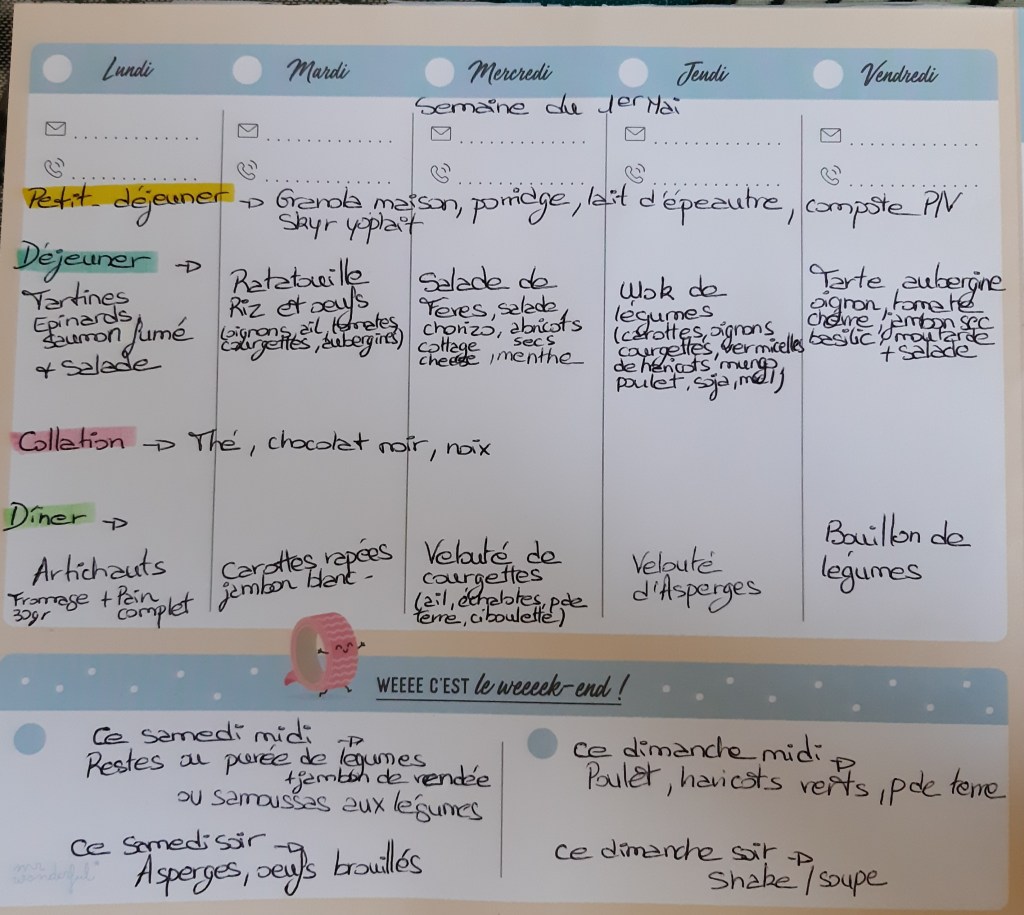 Lundi Mardi Mercredi Jeudi Vendredi
Semaine du 1er Mai
Petit-déjeuner → Granola maison, porridge, lait d'épeautre, compote P/V
Skyr yoplait
Déjeuner →
Tartines
Epinards,
saumon fumé
+ Salade
Ratatouille
Riz et oeufs
(oignons, ail, tomates
courgettes, aubergines)
Salade de
Fèves, salade,
chorizo, abricots
secs
cottage
cheese, menthe
Wok de
légumes
(carottes, oignons
courgettes, vermicelles
de haricots mungo
poulet, soja, miel)
Tarte aubergine
oignon, tomate
chèvre, jambon sec
basilic, moutarde
+ salade
Collation → Thé, chocolat noir, noix
Dîner →
Artichauts
Fromage + Pain
30gr complet
Carottes rapées
jambon blanc -
Velouté de
courgettes
(ail, échalotes, p de
terre, ciboulette)
Velouté
d'Asperges
Bouillon de
légumes
WEEEE C'EST le weeeek-end !
Ce samedi midi →
Restes ou purée de légumes
+ jambon de vendée
ou samoussas aux légumes
Ce samedi soir →
Asperges, oeufs brouillés
Ce dimanche midi →
Poulet, haricots verts, p de terre
Ce dimanche soir →
Shake / soupe